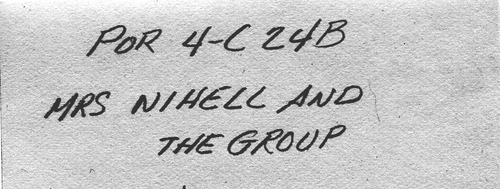 POR 4-C 24B
MRS NIHELL AND
THE GROUP